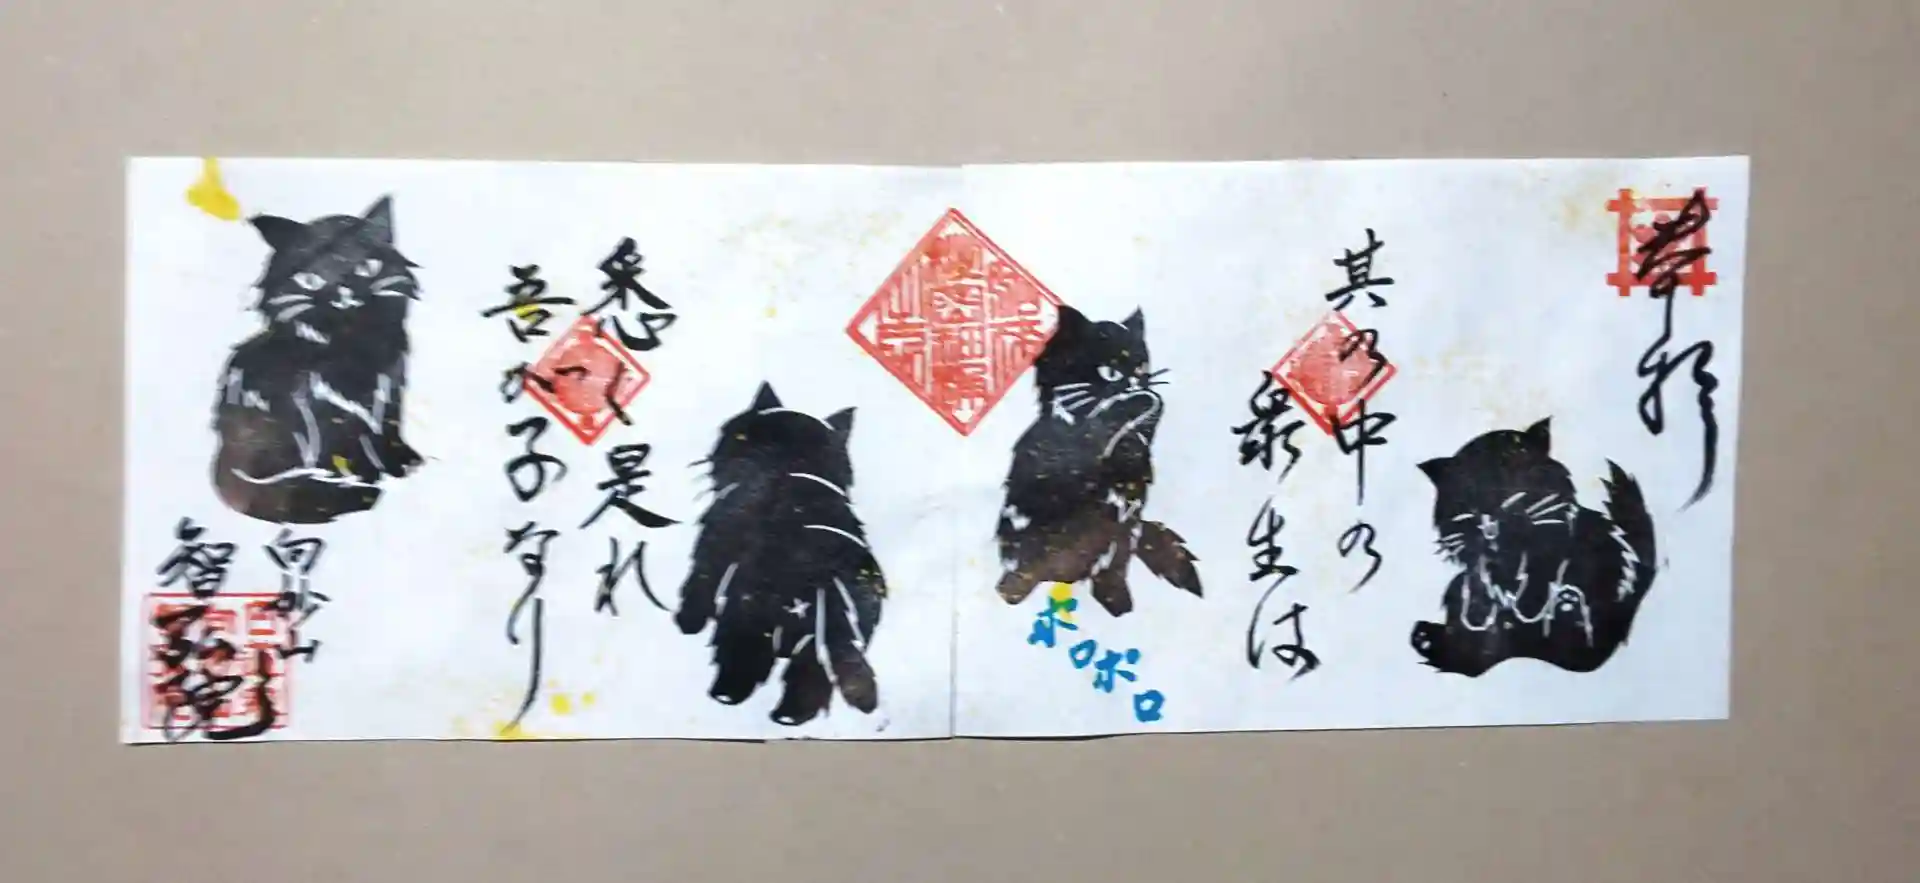 奉拝
其の中の
衆生は
ボロボロ
悉く是れ
吾が子なり
智弘院